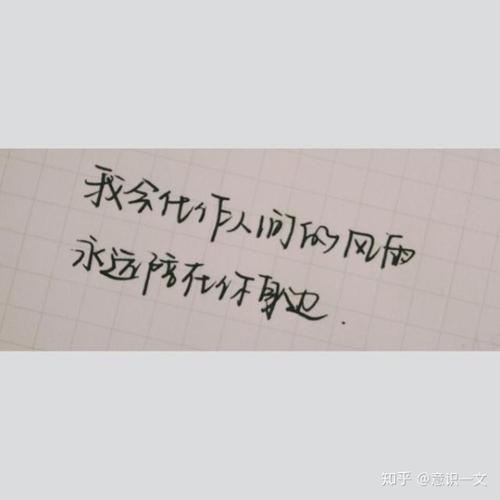 我会化作人间的风雨
永远陪在你身边.
知乎 @意识一文